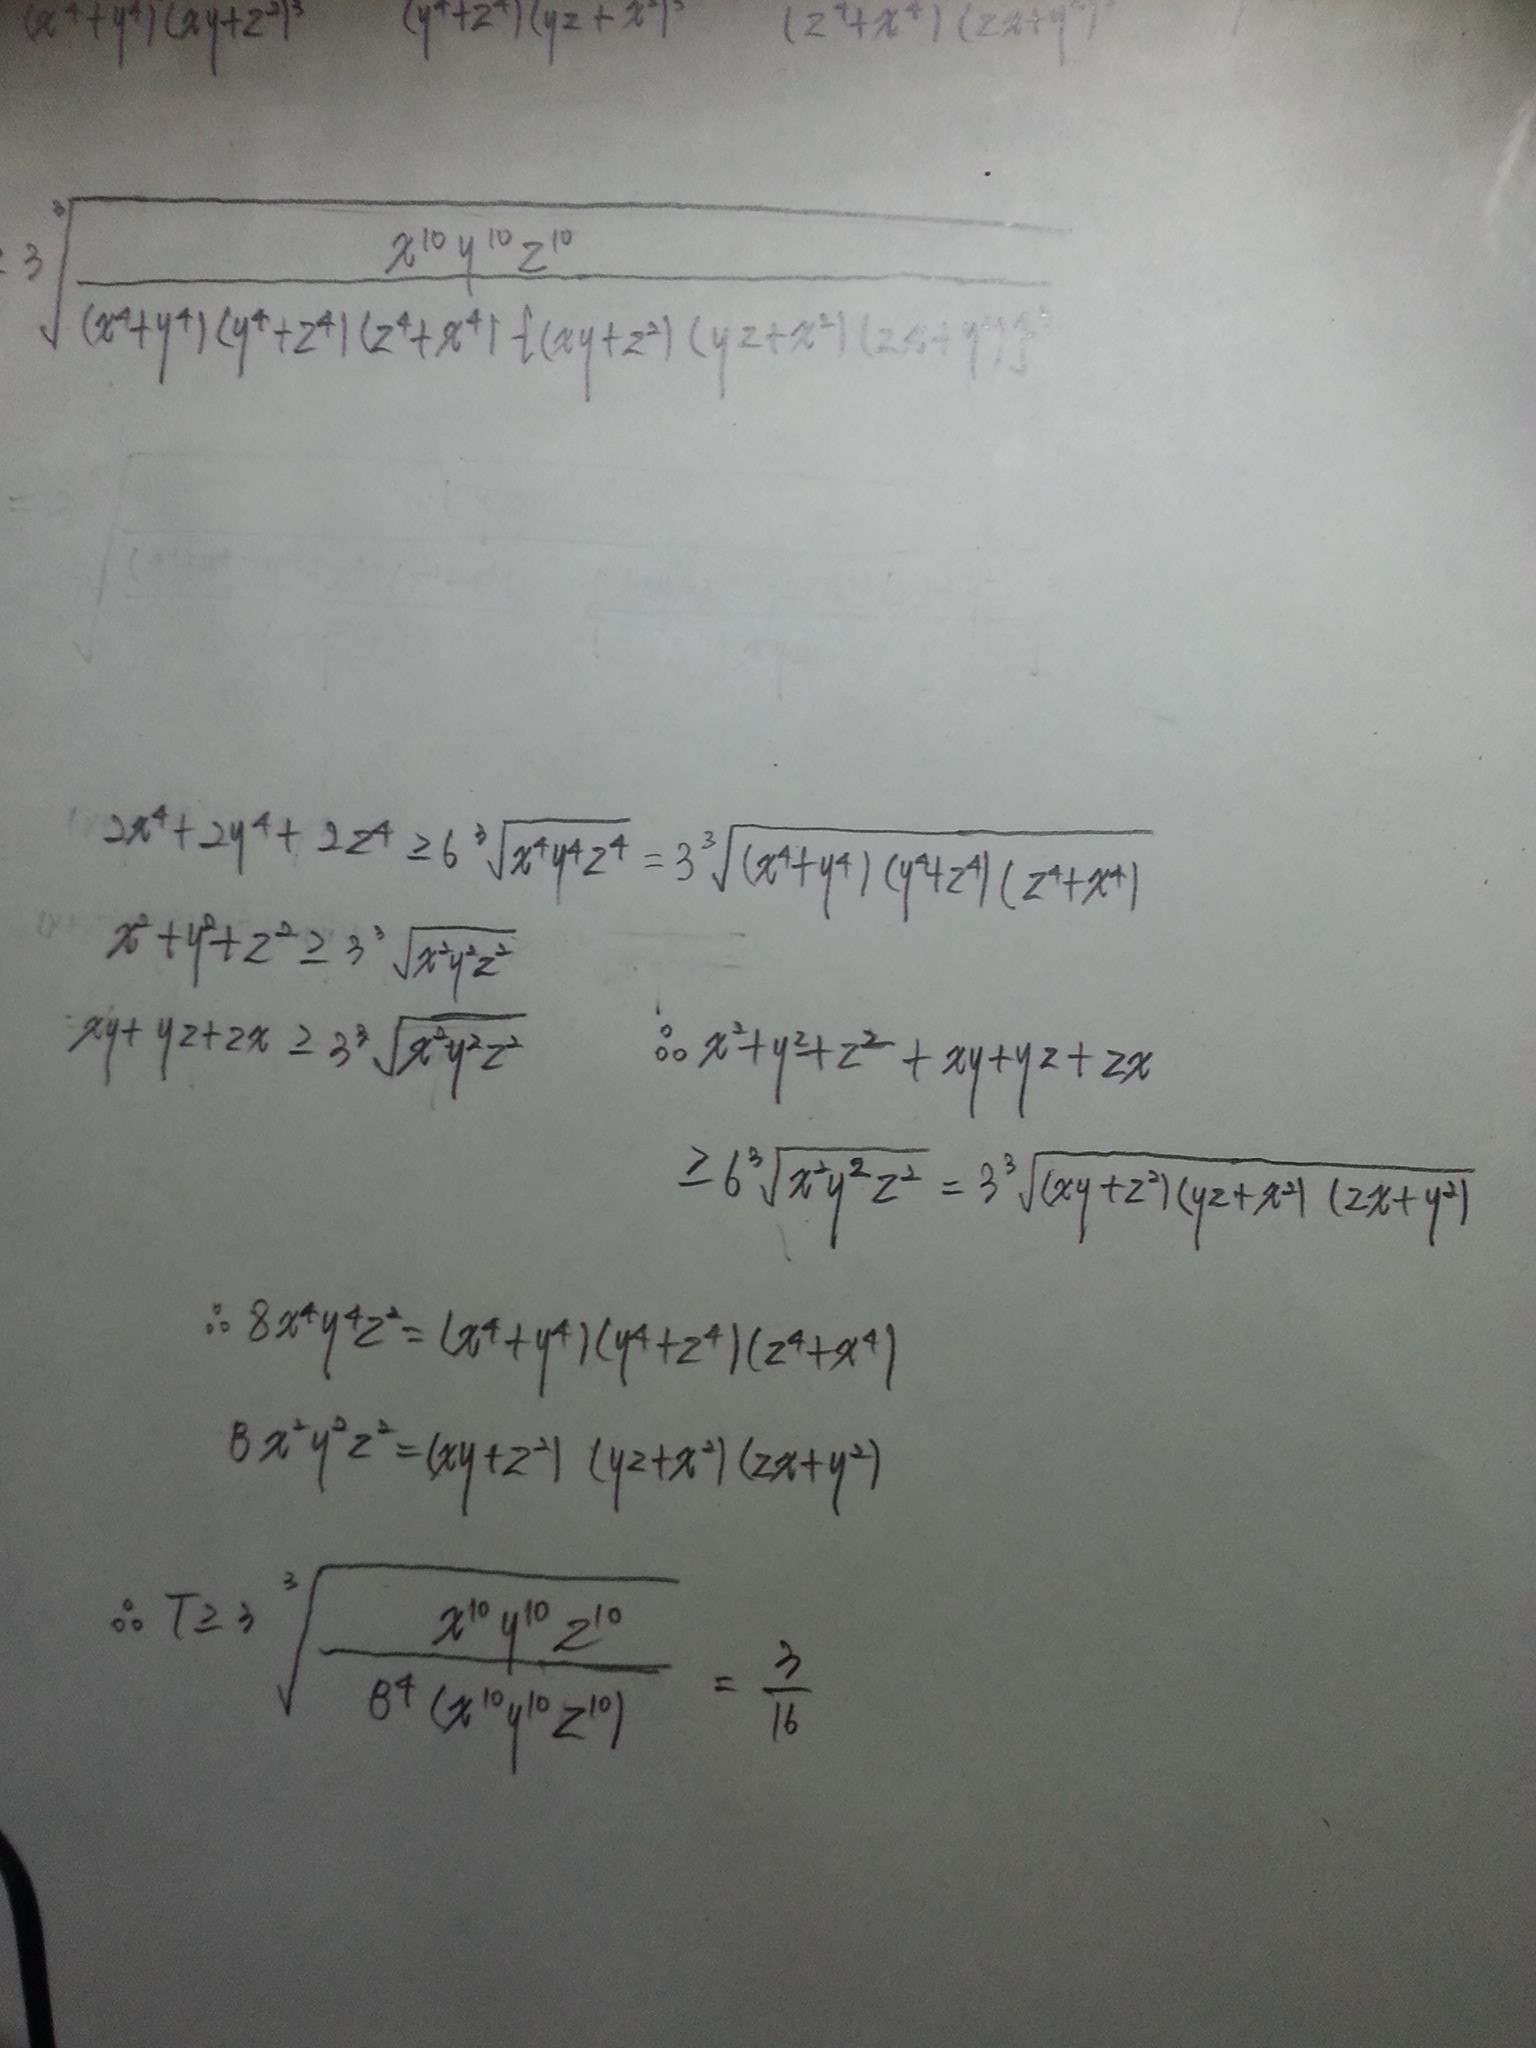 (x⁴+y⁴)(xy+z²)³ (y⁴+z⁴)(yz+x²)³ (z⁴+x⁴)(zx+y²)
≥ 3 ∛(x¹⁰y¹⁰z¹⁰ / (x⁴+y⁴)(y⁴+z⁴)(z⁴+x⁴){(xy+z²)(yz+x²)(zx+y²)}³)
2x⁴+2y⁴+2z⁴ ≥ 6 ∛(x⁴y⁴z⁴) = 3 ∛((x⁴+y⁴)(y⁴+z⁴)(z⁴+x⁴))
x²+y²+z² ≥ 3 ∛(x²y²z²)
xy+yz+zx ≥ 3 ∛(x²y²z²) ∴ x²+y²+z²+xy+yz+zx
≥ 6 ∛(x²y²z²) = 3 ∛((xy+z²)(yz+x²)(zx+y²))
∴ 8x⁴y⁴z² = (x⁴+y⁴)(y⁴+z⁴)(z⁴+x⁴)
8x²y²z² = (xy+z²)(yz+x²)(zx+y²)
∴ T ≥ 3 ∛(x¹⁰y¹⁰z¹⁰ / 8⁴(x¹⁰y¹⁰z¹⁰)) = 3/16